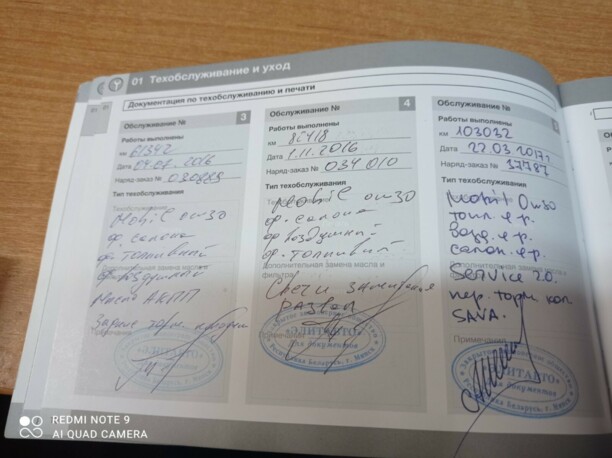 01 Техобслуживание и уход
Документация по техобслуживанию и печати
Обслуживание № 3
Работы выполнены
км 61342
Дата 2016
Наряд-заказ №
Тип техобслуживания
Mobil 0W30
ф. салона
ф. топливный
ф. воздушный
Дополнительная замена масла и фильтра
Масло АКПП
«ЭЛИТАВТО»
Для документов
Обслуживание № 4
Работы выполнены
км
Дата 1.11.2016
Наряд-заказ № 034010
Тип техобслуживания
Mobil 0W30
ф. салона
ф. воздушный
ф. топливный
Дополнительная замена масла и фильтра
Свечи зажигания
Развал
«ЭЛИТАВТО»
Для документов
Республика Беларусь, г. Минск
Обслуживание №
Работы выполнены
км 103032
Дата 22.03.2017г.
Наряд-заказ № 37787
Тип техобслуживания
Mobil 0W30
топл. ф-р.
возд. ф-р.
салон. ф-р.
Дополнительная замена масла и
Service 2.0.
пер. торм. кол.
SAVA.
Примечания
REDMI NOTE 9
AI QUAD CAMERA